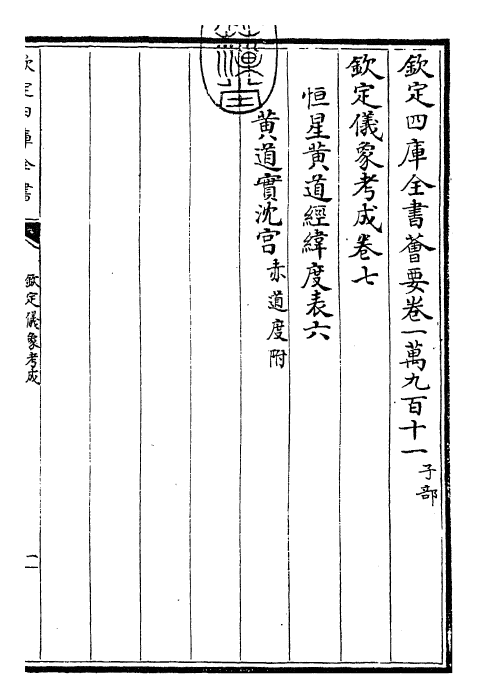 欽定四庫全書薈要卷一萬九百十一子部
欽定儀象考成卷七
恒星黃道經緯度表六
黃道實沈宮赤道度附
欽定四庫全書
欽定儀象考成